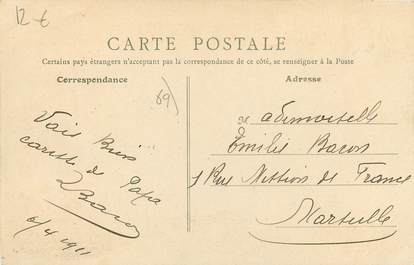 12 €
CARTE POSTALE
Certains pays étrangers n'acceptant pas la correspondance de ce côté, se renseigner à la Poste
Correspondance
69
Bien
de Papa
6/4 1911
Adresse
ademoiselle
Emilie Bacon
1 Rue Mission de France
Marseille